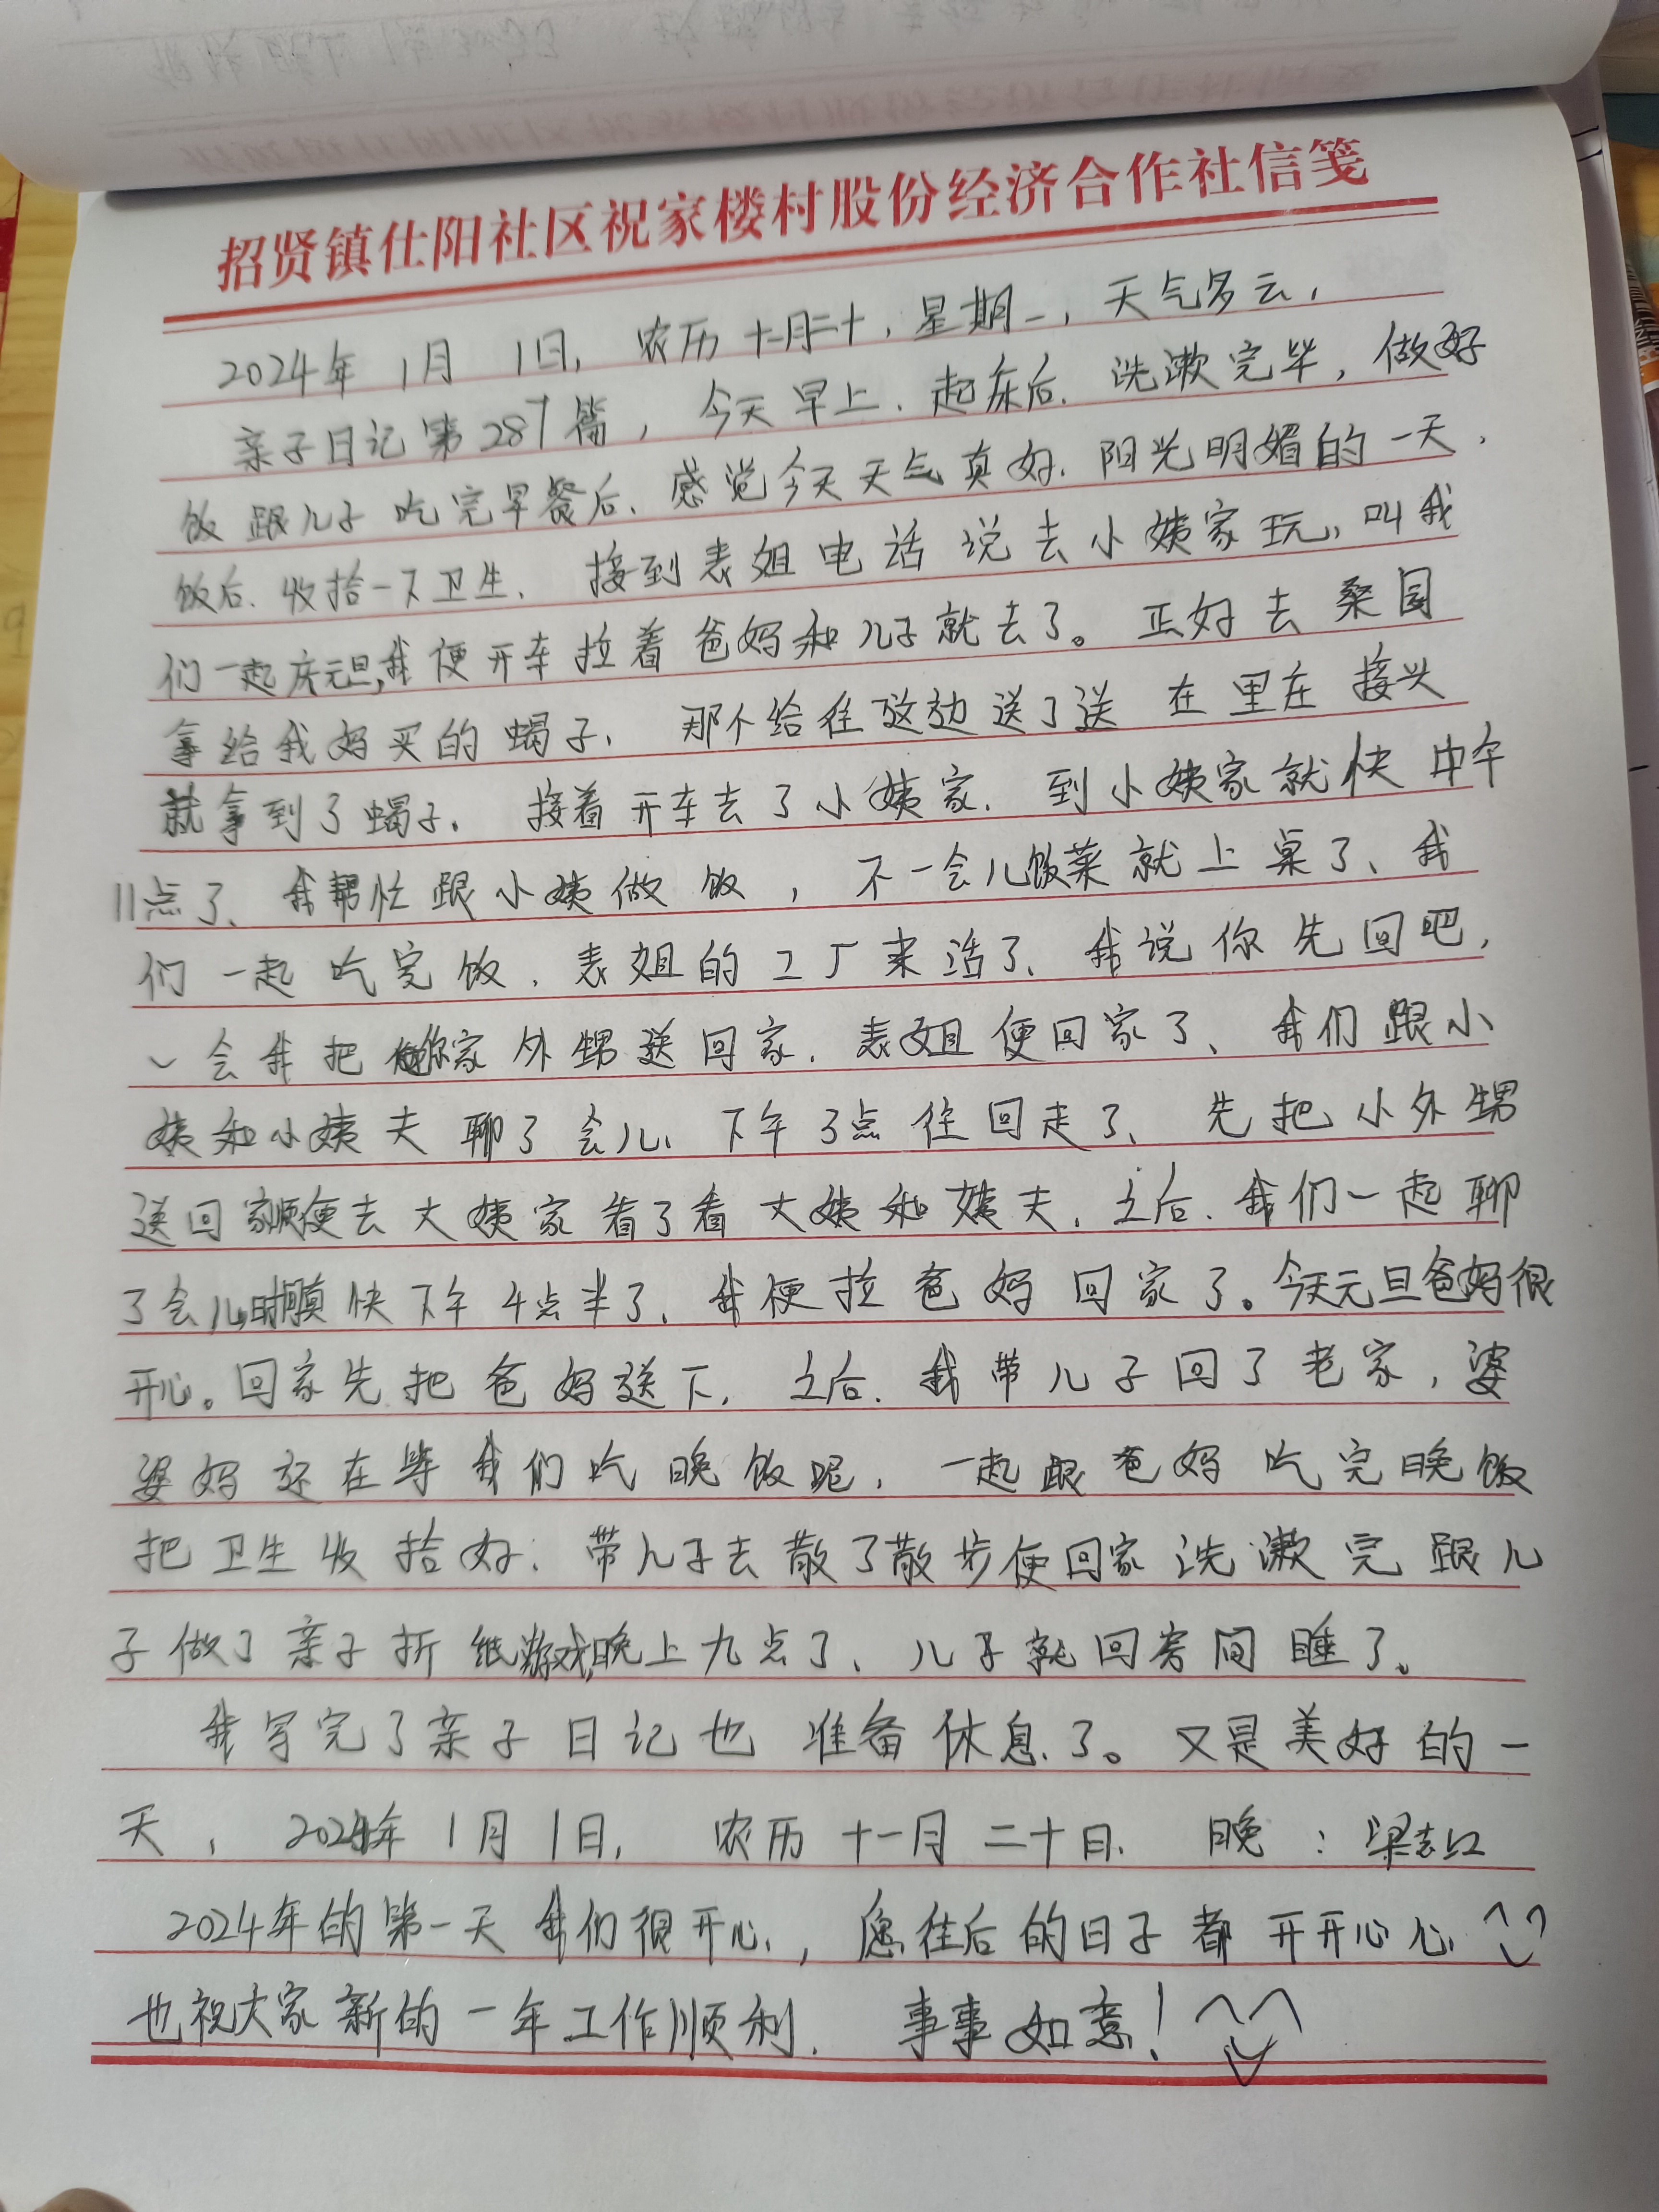 招贤镇仕阳社区祝家楼村股份经济合作社信笺
2024年 1月 1日, 农历十一月二十, 星期一, 天气多云,
亲子日记第287篇, 今天早上、起床后、洗漱完毕, 做好
饭跟儿子吃完早餐后、感觉今天天气真好、阳光明媚的一天、
饭后、收拾一下卫生、接到表姐电话说去小姨家玩、叫我
们一起庆元旦,我便开车拉着爸妈和儿子就去了。正好去桑园
拿给我妈买的蝎子、那个给往这边送了送 在里庄接头
就拿到了蝎子、接着开车去了小姨家、到小姨家就快中午
11点了、我帮忙跟小姨做饭, 不一会儿饭菜就上桌了、我
们一起吃完饭、表姐的工厂来活了、我说你先回吧、
一会我把你家外甥送回家、表姐便回家了、我们跟小
姨和小姨夫聊了会儿、下午3点往回走了、先把小外甥
送回家顺便去大姨家看了看大姨和姨夫、之后、我们一起聊
了会儿时间真快下午4点半了、我便拉爸妈回家了。今天元旦爸妈很
开心。回家先把爸妈送下、之后、我带儿子回了老家, 婆
婆妈还在等我们吃晚饭呢、一起跟爸妈吃完晚饭
把卫生收拾好、带儿子去散了散步便回家洗漱完跟儿
子做了亲子折纸游戏,晚上九点了、儿子就回房间睡了。
我写完了亲子日记也准备休息了。又是美好的一
天, 2024年1月1日, 农历十一月二十日、晚:梁志江
2024年的第一天我们很开心、, 愿往后的日子都开开心心
也祝大家新的一年工作顺利、事事如意!